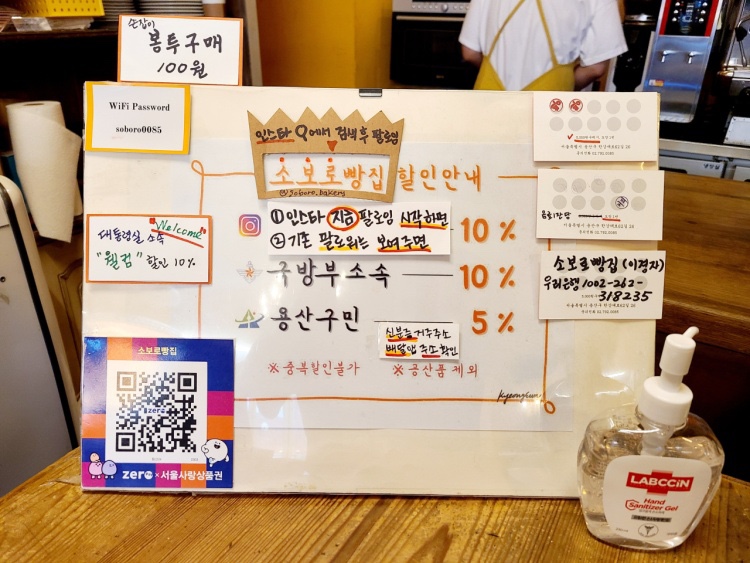 손잡이
봉투구매
100원
WiFi Password
soboro0085
인스타 Q에서 검색 후 팔로잉
소보로빵집 할인안내
@soboro.bakery
① 인스타 지금 팔로잉 시작하면
② 기존 팔로워는 보여주면
10%
국방부 소속 10%
용산구민 5%
신분증 거주주소
배달앱 주소 확인
※ 중복할인불가 ※ 공산품 제외
Welcome
대통령실 소속
"웰컴" 할인 10%
소보로빵집
zero
zero × 서울사랑상품권
서울특별시 용산구 한강대로62길 26
소보로빵집 (이경자)
우리은행 1002-262-
318235
LABCCiN
Hand
Sanitizer Gel